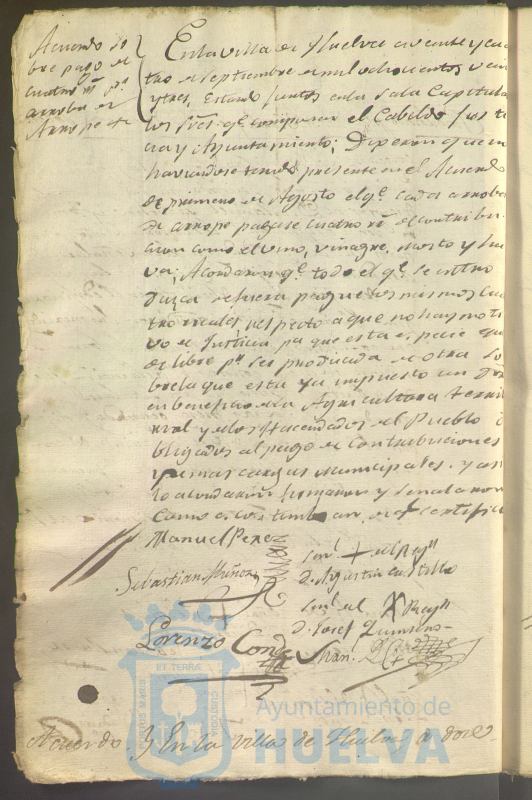 Acuerdo so
bre pago de
cuatro rs. pr.
arroba de
Arrope &
En la villa de Huelva a veinte y cua
tro de septiembre de mil ochocientos vein
y tres, Estando juntos en la Sala Capitula
los Sres. qe. componen el Cabildo Jus ti
cia y Ayuntamiento; Dijeron que en
haviendose tenido presente en el Acuerdo
de primero de Agosto el qe. cada arroba
de arrope pagase cuatro rs. de contribu
cion como el vino, vinagre, mosto y hu
va; Acordaron qe. todo el qe. se intro
duzca de fuera pague los mismos cua
tro reales, respecto a que no hay moti
vo de Justicia pa que esta especie que
de libre pr. ser producida de otra so
bre la que esta ya impuesto un
en beneficio de la Agricultura
y de los Hacendados del Pueblo o
bligados al pago de Contribuciones
y demas cargas municipales. y asi
lo acordaron firmaron y señalaron
como a costumbran, de qe certifico
Manuel Perez
Señl. + del Regr
Sebastian Muñoz
D. Agustin Castilla
Señl. del X Regr
Lorenzo Conde
D. Josef Quintero
ET TERRÆ
PORTUS MARIS
CUSTODIA
Ayuntamiento de
HUELVA
Acuerdo } En la villa de Huelva a doce